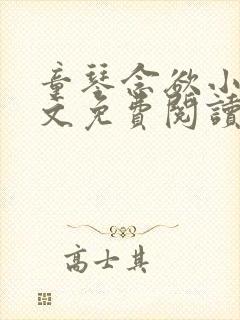 童琴念欲小
文免費閱讀
高士其